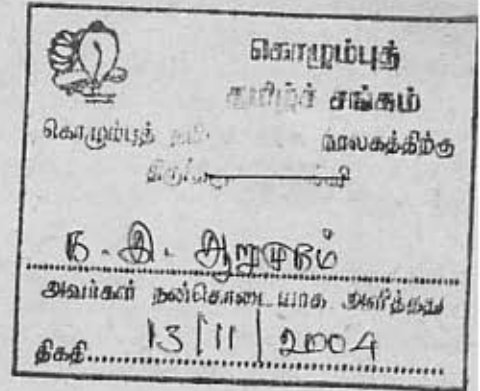 கொழும்புத்
தமிழ்ச் சங்கம்
கொழும்புத் நூலகத்திற்கு
க. இ. ஆறுமுகம்
அவர்கள் நன்கொடையாக அளித்தது
திகதி 13/11/2004